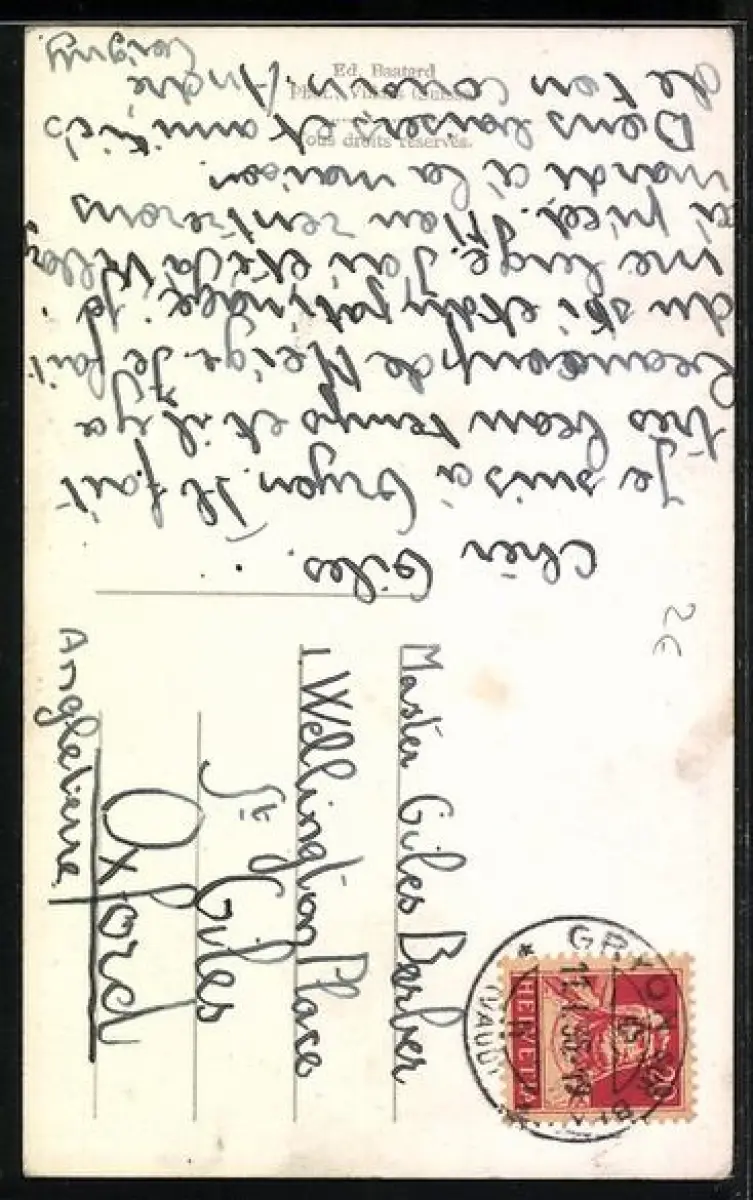 Ed. Baatard
Phot., Villars (Suisse)
Tous droits réservés.
Cher Giles.
Je suis à Gryon. Il fait
très beau temps et il y a
beaucoup de Neige. Je fait
du ski et du patinage.
luge. J'ai été à Villars
à pied. rentrerons
mardi à la maison.
Bons baisers et amitiés
de ton cousin. André
2€
Master Giles Barber
1. Wellington Place
St Giles
Oxford
Angleterre
GRYON
(VAUD)
HELVETIA
20